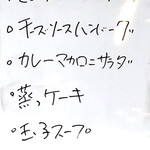 ○チーズソースハンバーグ
○カレーマカロニサラダ
○蒸しケーキ
○玉子スープ